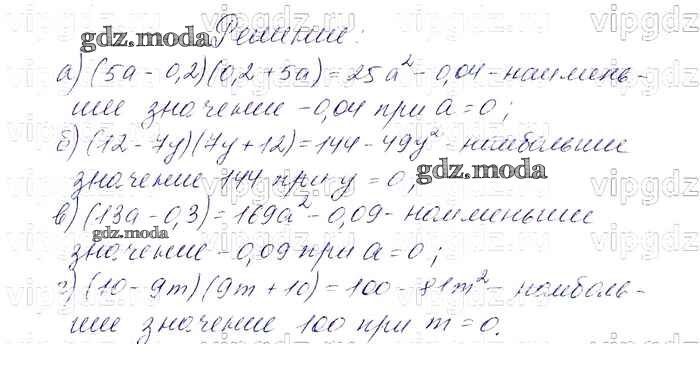 Решение:
а) (5a - 0,2)(0,2 + 5a) = 25a² - 0,04 - наимень-
шие значение -0,04 при a = 0;
б) (12 - 7y)(7y + 12) = 144 - 49y² - наибольшие
значение 144 при y = 0;
в) (13a - 0,3) = 169a² - 0,09 - наименьшие
значение -0,09 при a = 0;
г) (10 - 9m)(9m + 10) = 100 - 81m² - наиболь-
шие значение 100 при m = 0.
gdz.moda
gdz.moda
gdz.moda
vipgdz